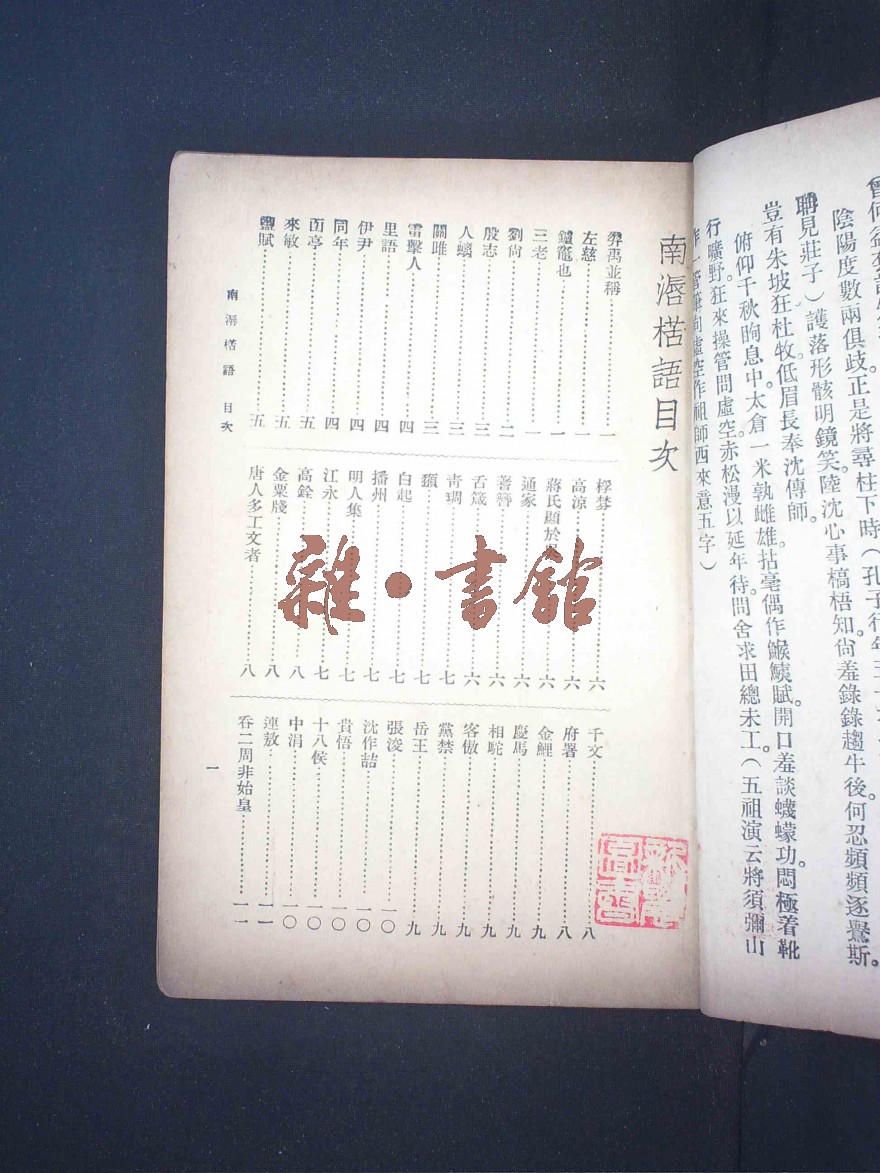 陰陽度數兩俱歧正是將尋柱下時(孔子行年五十
聃見莊子)護落形骸明鏡笑陸沈心事槁梧知。尙羞錄錄趨牛後何忍頻頻逐鷽斯。
豈有朱坡狂杜牧低眉長奉沈傳師。
俯仰千秋眴息中。太倉一米孰雌雄拈毫偶作鯸鮧賦開口羞談蠛蠓功。悶極着靴
行曠野狂來操管問虛空。赤松漫以延年待。問舍求田總未工。(五祖演云將須彌山
虛空作祖師西來意五字)
南漘楛語目次
羿禹並稱 一
左慈 一
鐘龍也 一
三老 一
劉尙 二
殷志 三
人螭 三
關雎 三
雷擊人 四
里語 四
伊尹 四
同年 四
面亭 五
來敏 五
鹽賦 五
椁棼 六
高涼 六
蔣氏顯於 六
通家 六
蓍簪 六
舌箴 六
靑琱 七
玃 七
白起 七
播州 七
明人集 七
江永 七
高銓 八
金粟牋 八
唐人多工文者 八
千文 八
府署 八
金鯉 九
慶馬 九
相駝 九
客傲 九
黨禁 九
岳王 九
張浚 一〇
沈作喆 一〇
貴悟 一〇
十八侯 一〇
中涓 一〇
連敖 一一
吞二周非始皇 一一
南漘楛語 目次
一
雜·書館